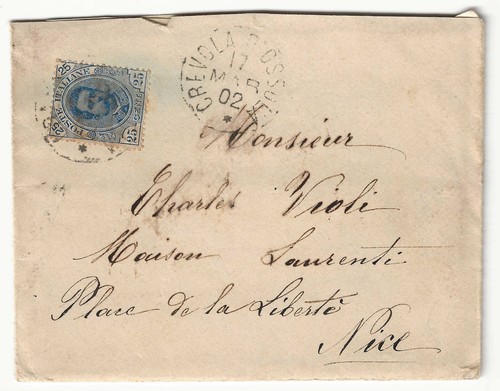 25 25
POSTE ITALIANE
25 25
CREVOLA D'OSSOLA
17
MAR
02
Monsieur
Charles Violi
Maison Laurenti
Place de la Libertè
Nice